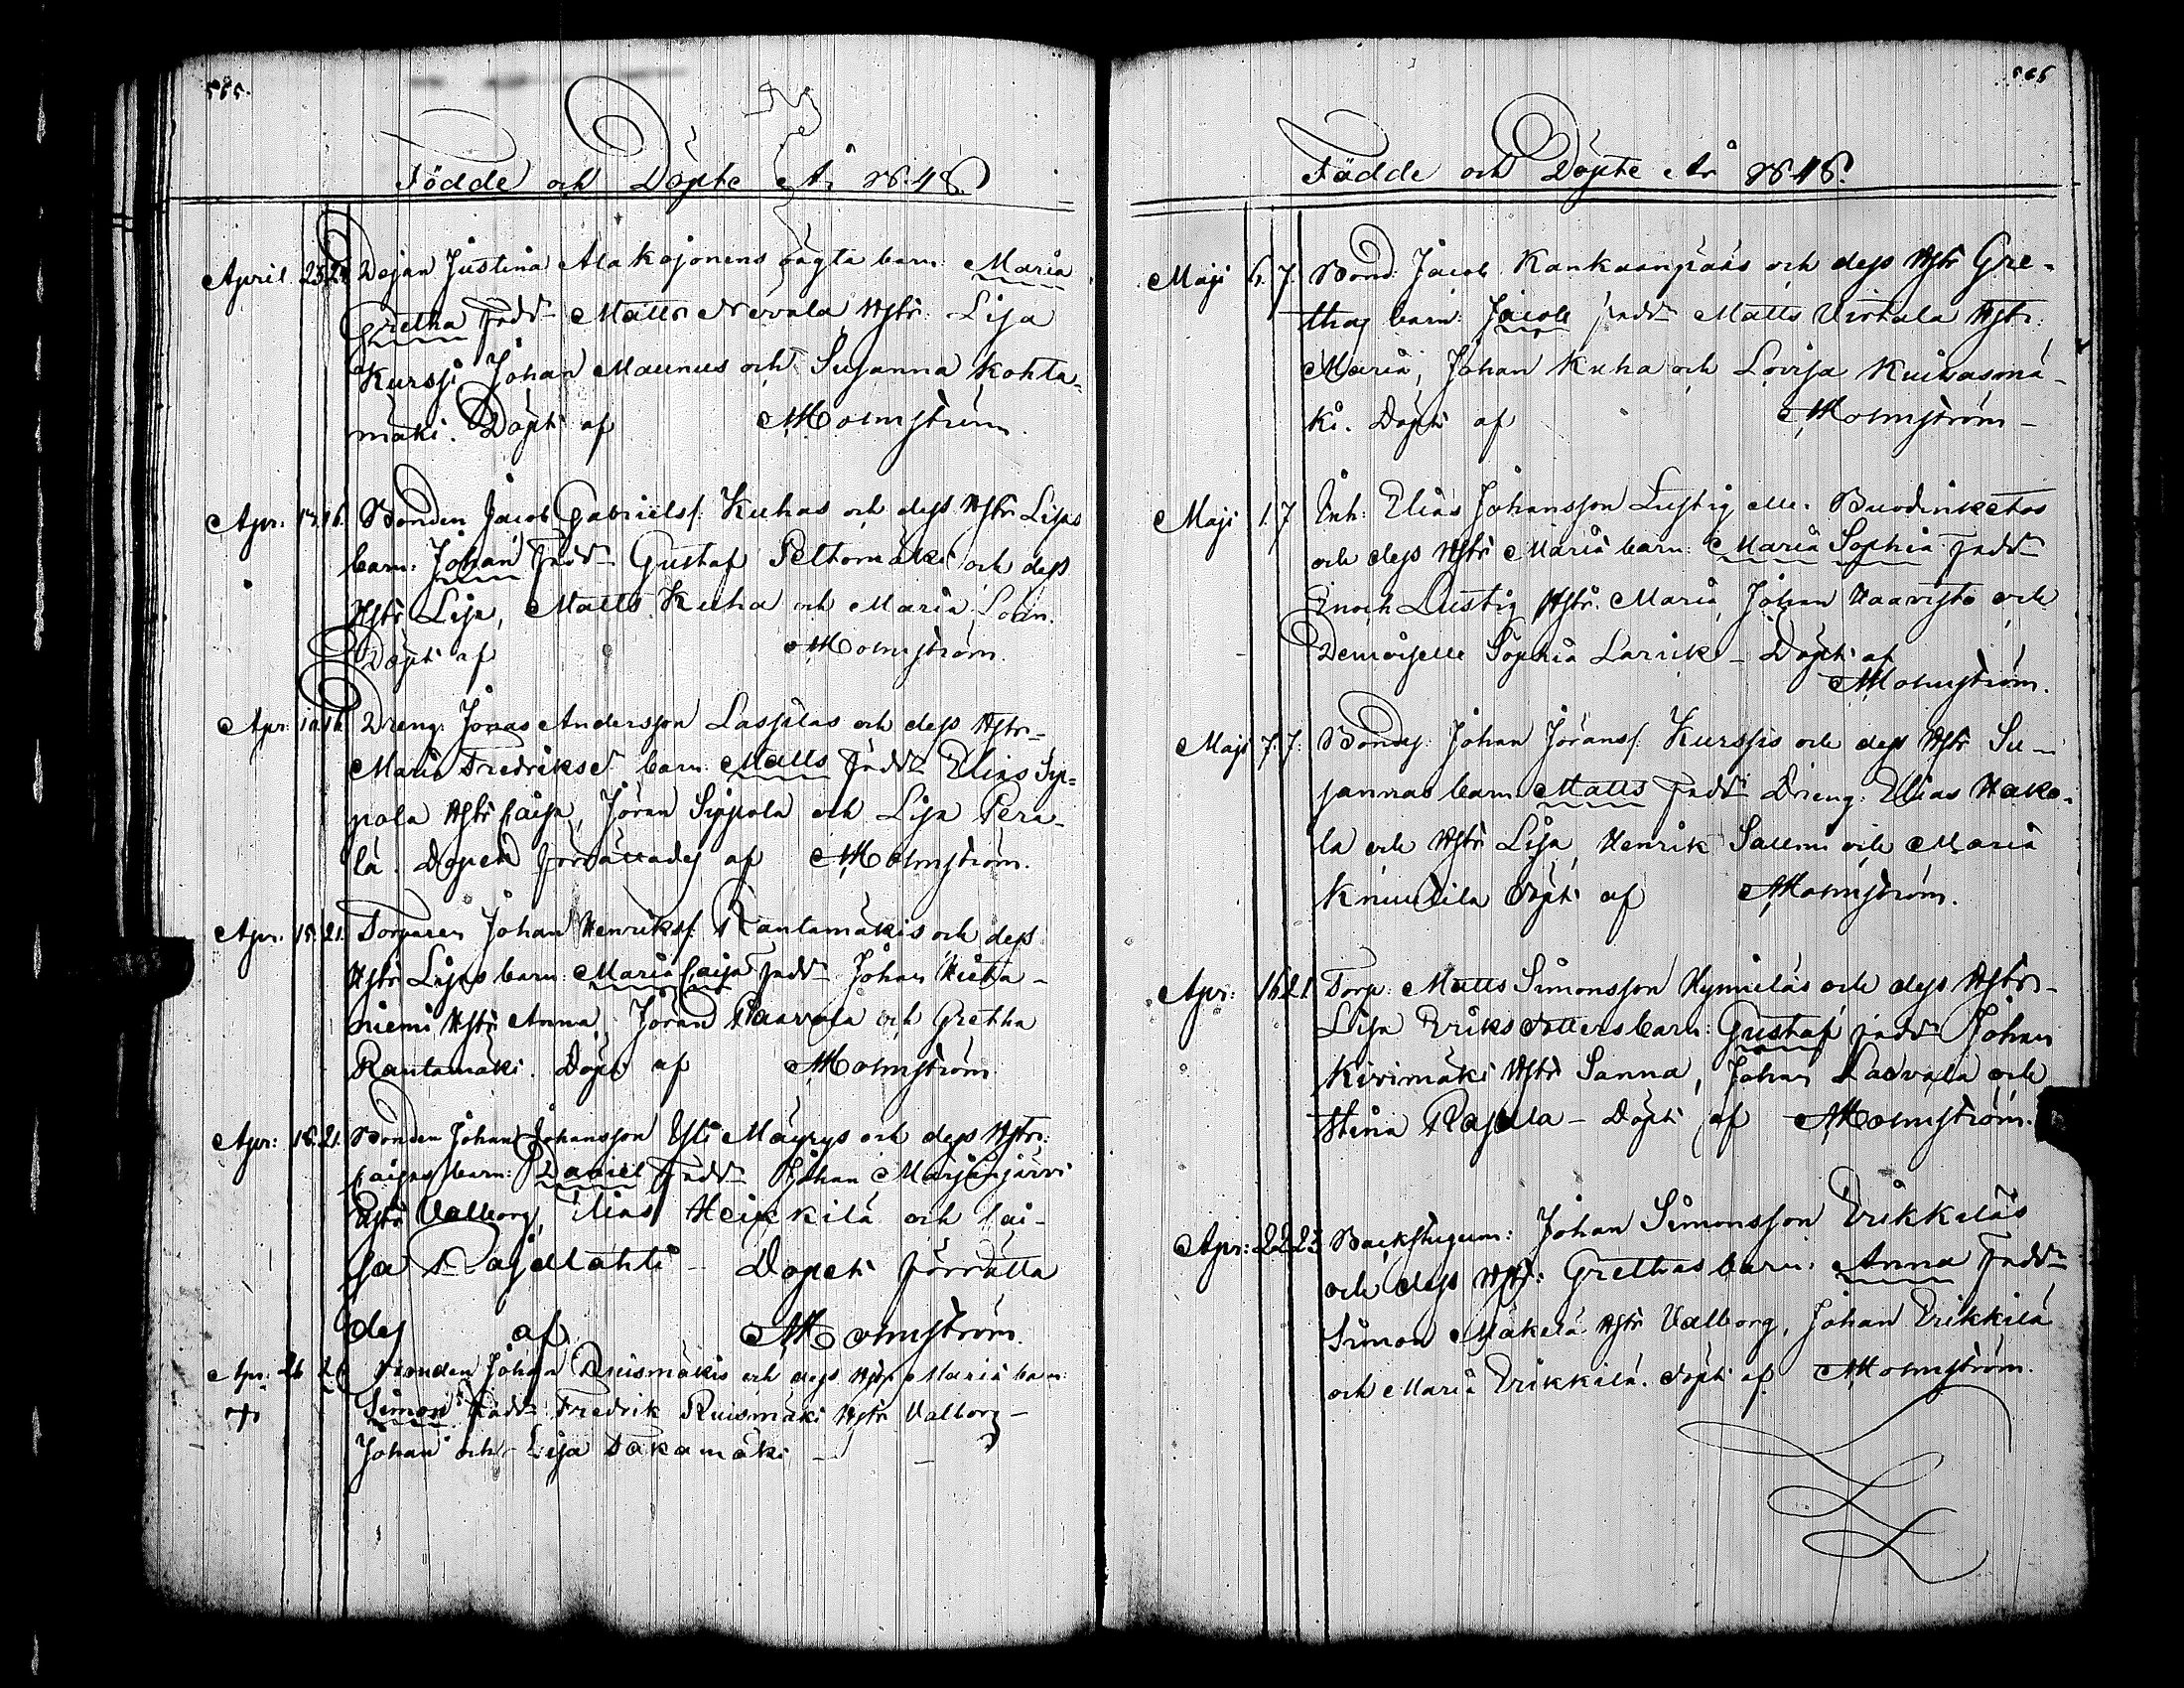 565.
Födde och Döpte År 1848.
April 23. 24. Pigan Justina Alakojonens oägta barn: Maria
Gretha Fadd. Matts Nevala Hstr: Lisa
Kurssi Johan Maunus och Susanna Kohta-
mäki. Döpt af MHolmström
Apr: 13. 16. Bonden Jacob Gabrielss. Kuhas och dess Hstr Lisas
barn: Johan Fadd Gustaf Peltomäki och dess
Hstr Lisa, Matts Kuha och Maria
Döpt af MHolmström.
Apr: 10. 16. Dreng: Jonas Andersson Lassilas och dess Hstr-
Maria Fredriksd. barn: Matts Fadd. Elias Sip-
pola Hstr Caisa, Jöran Sippola och Lisa Pera-
la. Dopet förrättades af MHolmström.
Apr. 15. 21. Torparen Johan Henrikss. Rantamäkis och dess
Hstr Lisas barn: Maria Caisa Fadd. Johan Hieta-
niemi Hstr Anna, Jöran Paavola och Gretha
Rantamäki. Döpt af MHolmström
Apr: 18. 21. Bonden Johan Johansson Yli Mäyrys och dess Hstr:
Caisas barn: Daniel Fadd. Johan Marjanjärvi
Hstr Valborg, Elias Heikkilä och Cai-
sa Rajalahti - Dopet förrätta
des af MHolmström.
Apr: 26 26 Bonden Johan Ruismäkis och dess Hstr Maria barn:
Simon Fadd. Fredrik Ruismäki Hstr Valborg -
Johan och Lisa Takamäki -
566
Födde och Döpte År 1848.
Maji 6. 7. Bond: Jacob Kankaanpääs och dess Hstr Gre-
thas barn: Jacob Fadd. Matts Virtala Hstr:
Maria, Johan Kuha och Lovisa Kuivasmä-
ki. Döpt af MHolmström -
Maji 1. 7 Inh: Elias Johansson Lustig elle. Buodinketos
och dess Hstr Maria barn: Maria Sophia Fadd
Enoch Lustig Hstr. Maria, Johan Haavisto och
Demoiselle Sophia Larsik - Döpt af
MHolmström.
Maji 7. 7. Bondes. Johan Jöranss. Kurssis och dess Hstr Su-
sannas barn: Matts Fadd Dreng: Elias Hako-
la och Hstr Lisa, Henrik Salmi och Maria
Knuutila döpt af MHolmström.
Apr: 16 21 Torp: Matts Simonsson Hynniläs och dess Hstr-
Lisa Eriks dotters barn: Gustaf Fadd Johan
Kivimäki Hstr Sanna, Johan Laovala och
Stina Rajala - Döpt af MHolmström.
Apr: 22 23 Backstugum: Johan Simonsson Erikkiläs
och dess Hstr: Grethas barn: Anna Fadd
Simon Mäkelä Hstr Valborg, Johan Erikkilä
och Maria Erikkilä. döpt af MHolmström.